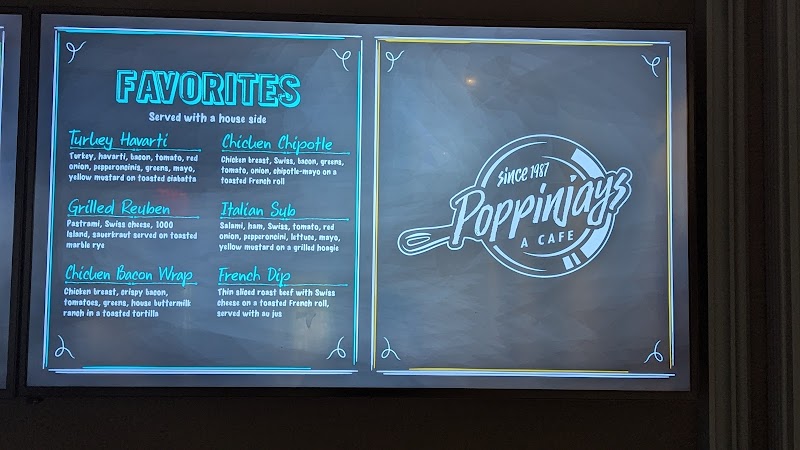 FAVORITES
Served with a house side
Turkey Havarti
Turkey, havarti, bacon, tomato, red
onion, pepperoncinis, greens, mayo,
yellow mustard on toasted ciabatta
Grilled Reuben
Pastrami, Swiss cheese, 1000
Island, sauerkraut served on toasted
marble rye
Chicken Bacon Wrap
Chicken breast, crispy bacon,
tomatoes, greens, house buttermilk
ranch in a toasted tortilla
Chicken Chipotle
Chicken breast, Swiss, bacon, greens,
tomato, onion, chipotle-mayo on a
toasted French roll
Italian Sub
Salami, ham, Swiss, tomato, red
onion, pepperoncini, lettuce, mayo,
yellow mustard on a grilled hoagie
French Dip
Thin sliced roast beef with Swiss
cheese on a toasted French roll,
served with au jus
since 1987
Poppinjays
A CAFE